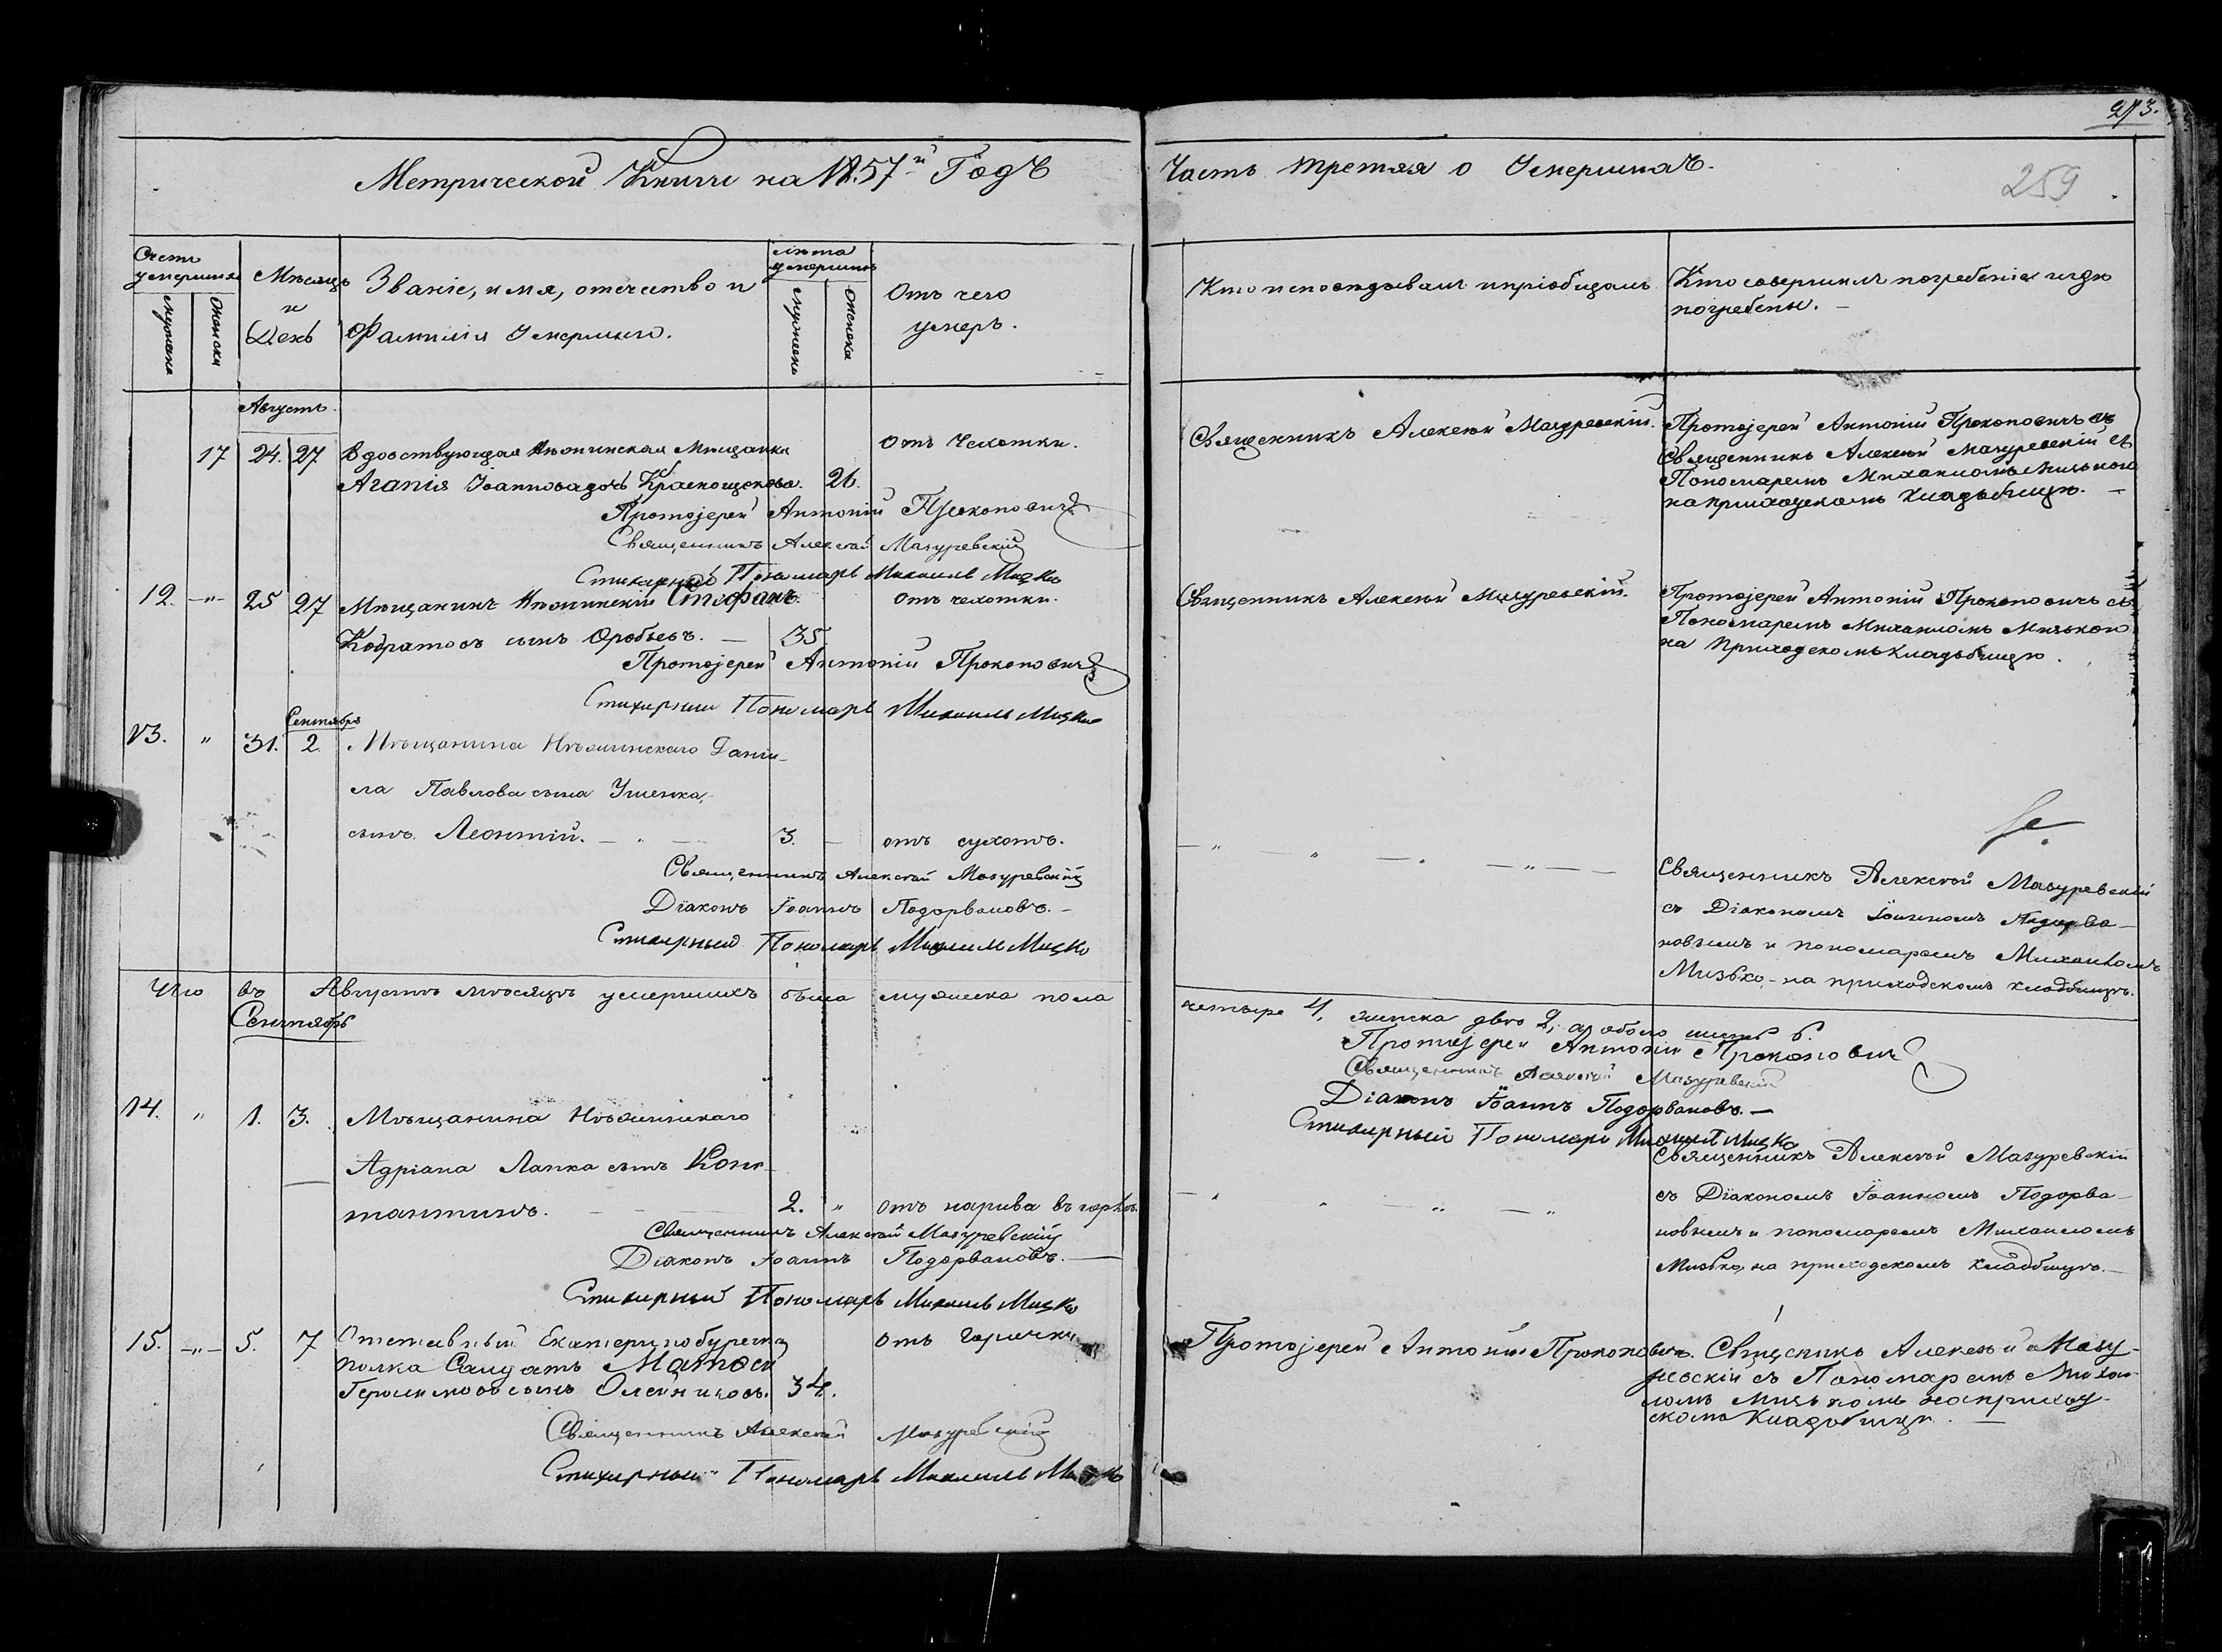 273.
259
Метрической Книги на 1857й Годъ
Часть третяя о Умершихъ.
Счетъ умершихъ
Мужеска
Женска
Мѣсяцъ и День
Званіе, имя, отечество и
Фамилія Умершаго.
лѣта умершихъ
мужеска
женска
Отъ чего
умеръ.
Кто исповѣдывалъ и пріобщалъ
Кто совершилъ погребеніе и гдѣ
погребены.
Августъ
17 24. 27 Вдовствующая Нѣжинская Мѣщанка
Отъ Чехотки.
Агапія Іоаннова дочь Краснощекова. 26.
Протоіерей Антоній Прокоповичъ
Священникъ Алексѣй Мазуревскій
Стихарный Пономарь Михаилъ Мизко
Священникъ Алексѣй Мазуревскій.
Протоіерей Антоній Прокоповичъ съ
Священникъ Алексѣй Мазуревскій съ
Пономаремъ Михаиломъ Мизькомъ
на приходскомъ кладбищѣ. —
12. -"- 25 27 Мѣщанинъ Нѣжинскій Стефанъ
отъ чехотки.
Кодратовъ сынъ Оробьевъ. — 35
Протоіерей Антоній Прокоповичъ
Стихарный Пономарь Михаилъ Мизко
Священникъ Алексѣй Мазуревскій.
Протоіерей Антоній Прокоповичъ съ
Пономаремъ Михаиломъ Мизькомъ
на Приходскомъ кладбищѣ.
Сентябрь
13. " 31. 2. Мѣщанина Нѣжинскаго Дани-
ла Павлова сына Ушенка,
сынъ Леонтій. — 3. — отъ сухотъ.
Священникъ Алексѣй Мазуревскій
Діаконъ Іоаннъ Подорвановъ. —
Стихарный Пономарь Михаилъ Мизко
— " — " — . — " — —
Священникъ Алексѣй Мазуревскій
съ Діакономъ Іоанномъ Подорва-
новымъ и пономаремъ Михаиломъ
Мизько, на приходскомъ кладбищѣ.
въ Августѣ мѣсяцѣ умершихъ было мужеска пола
четыре 4, женска два 2, а обоего шесть 6.
Протоіерей Антоній Прокоповичъ
Священникъ Алексѣй Мазуревскій
Діаконъ Іоаннъ Подорвановъ. —
Стихарный Пономарь Михаилъ Мизко
Сентябрь
14. " 1. 3. Мѣщанина Нѣжинскаго
Адріана Лапка сынъ Конс-
тантинъ. — 2. " отъ нарива въ горлѣ.
Священникъ Алексѣй Мазуревскій
Діаконъ Іоаннъ Подорвановъ. —
Стихарный Пономарь Михаилъ Мизко
Священникъ Алексѣй Мазуревскій
съ Діакономъ Іоанномъ Подорва-
новымъ и пономаремъ Михаиломъ
Мизько, на приходскомъ кладбищѣ. —
15. -"- 5. 7 Отставный Екатеринобурскаго
отъ Горячки
полка Салдатъ Матѳей
Герасимовъ сынъ Олейниковъ. 34.
Священникъ Алексѣй Мазуревскій
Стихарный Пономарь Михаилъ Мизко
Протоіерей Антоній Прокоповичъ.
Священникъ Алексѣй Мазу-
ревскій съ Пономаремъ Михаи-
ломъ Мизькомъ на приход-
скомъ Кладбищѣ. —